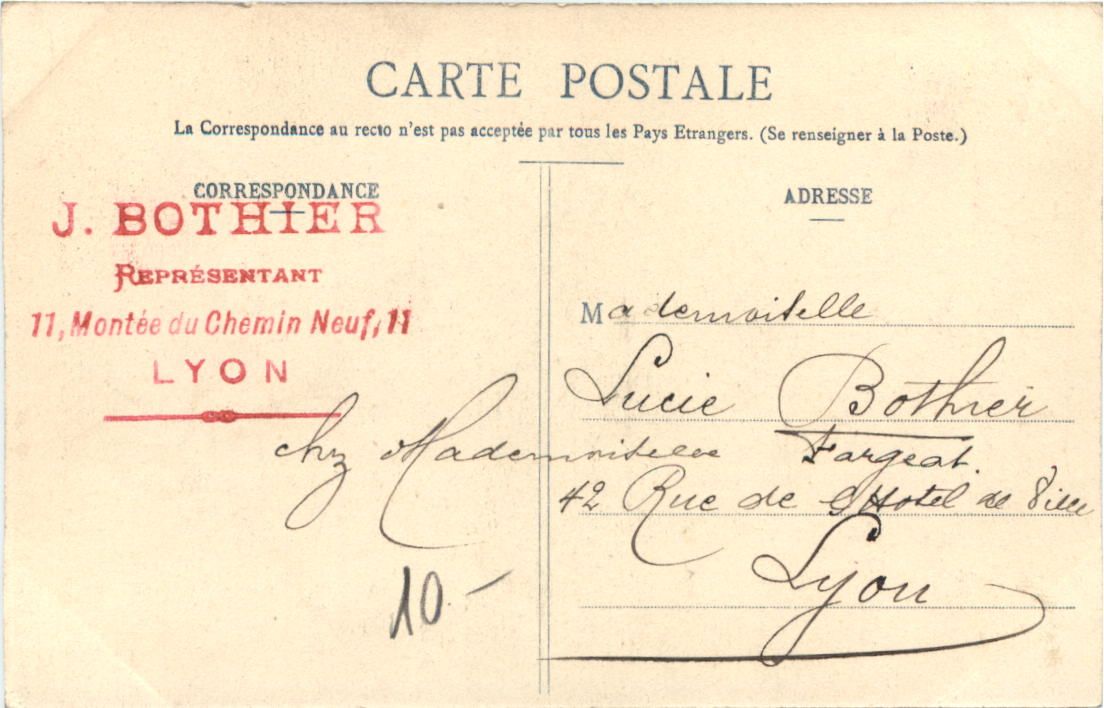 CARTE POSTALE
La Correspondance au recto n'est pas acceptée par tous les Pays Etrangers. (Se renseigner à la Poste.)
CORRESPONDANCE
J. BOTHIER
REPRÉSENTANT
11, Montée du Chemin Neuf, 11
LYON
10.-
ADRESSE
Mademoiselle
Lucie Bothier
chz Mademoiselle Fargeat.
42 Rue de l'Hotel de Ville
Lyon